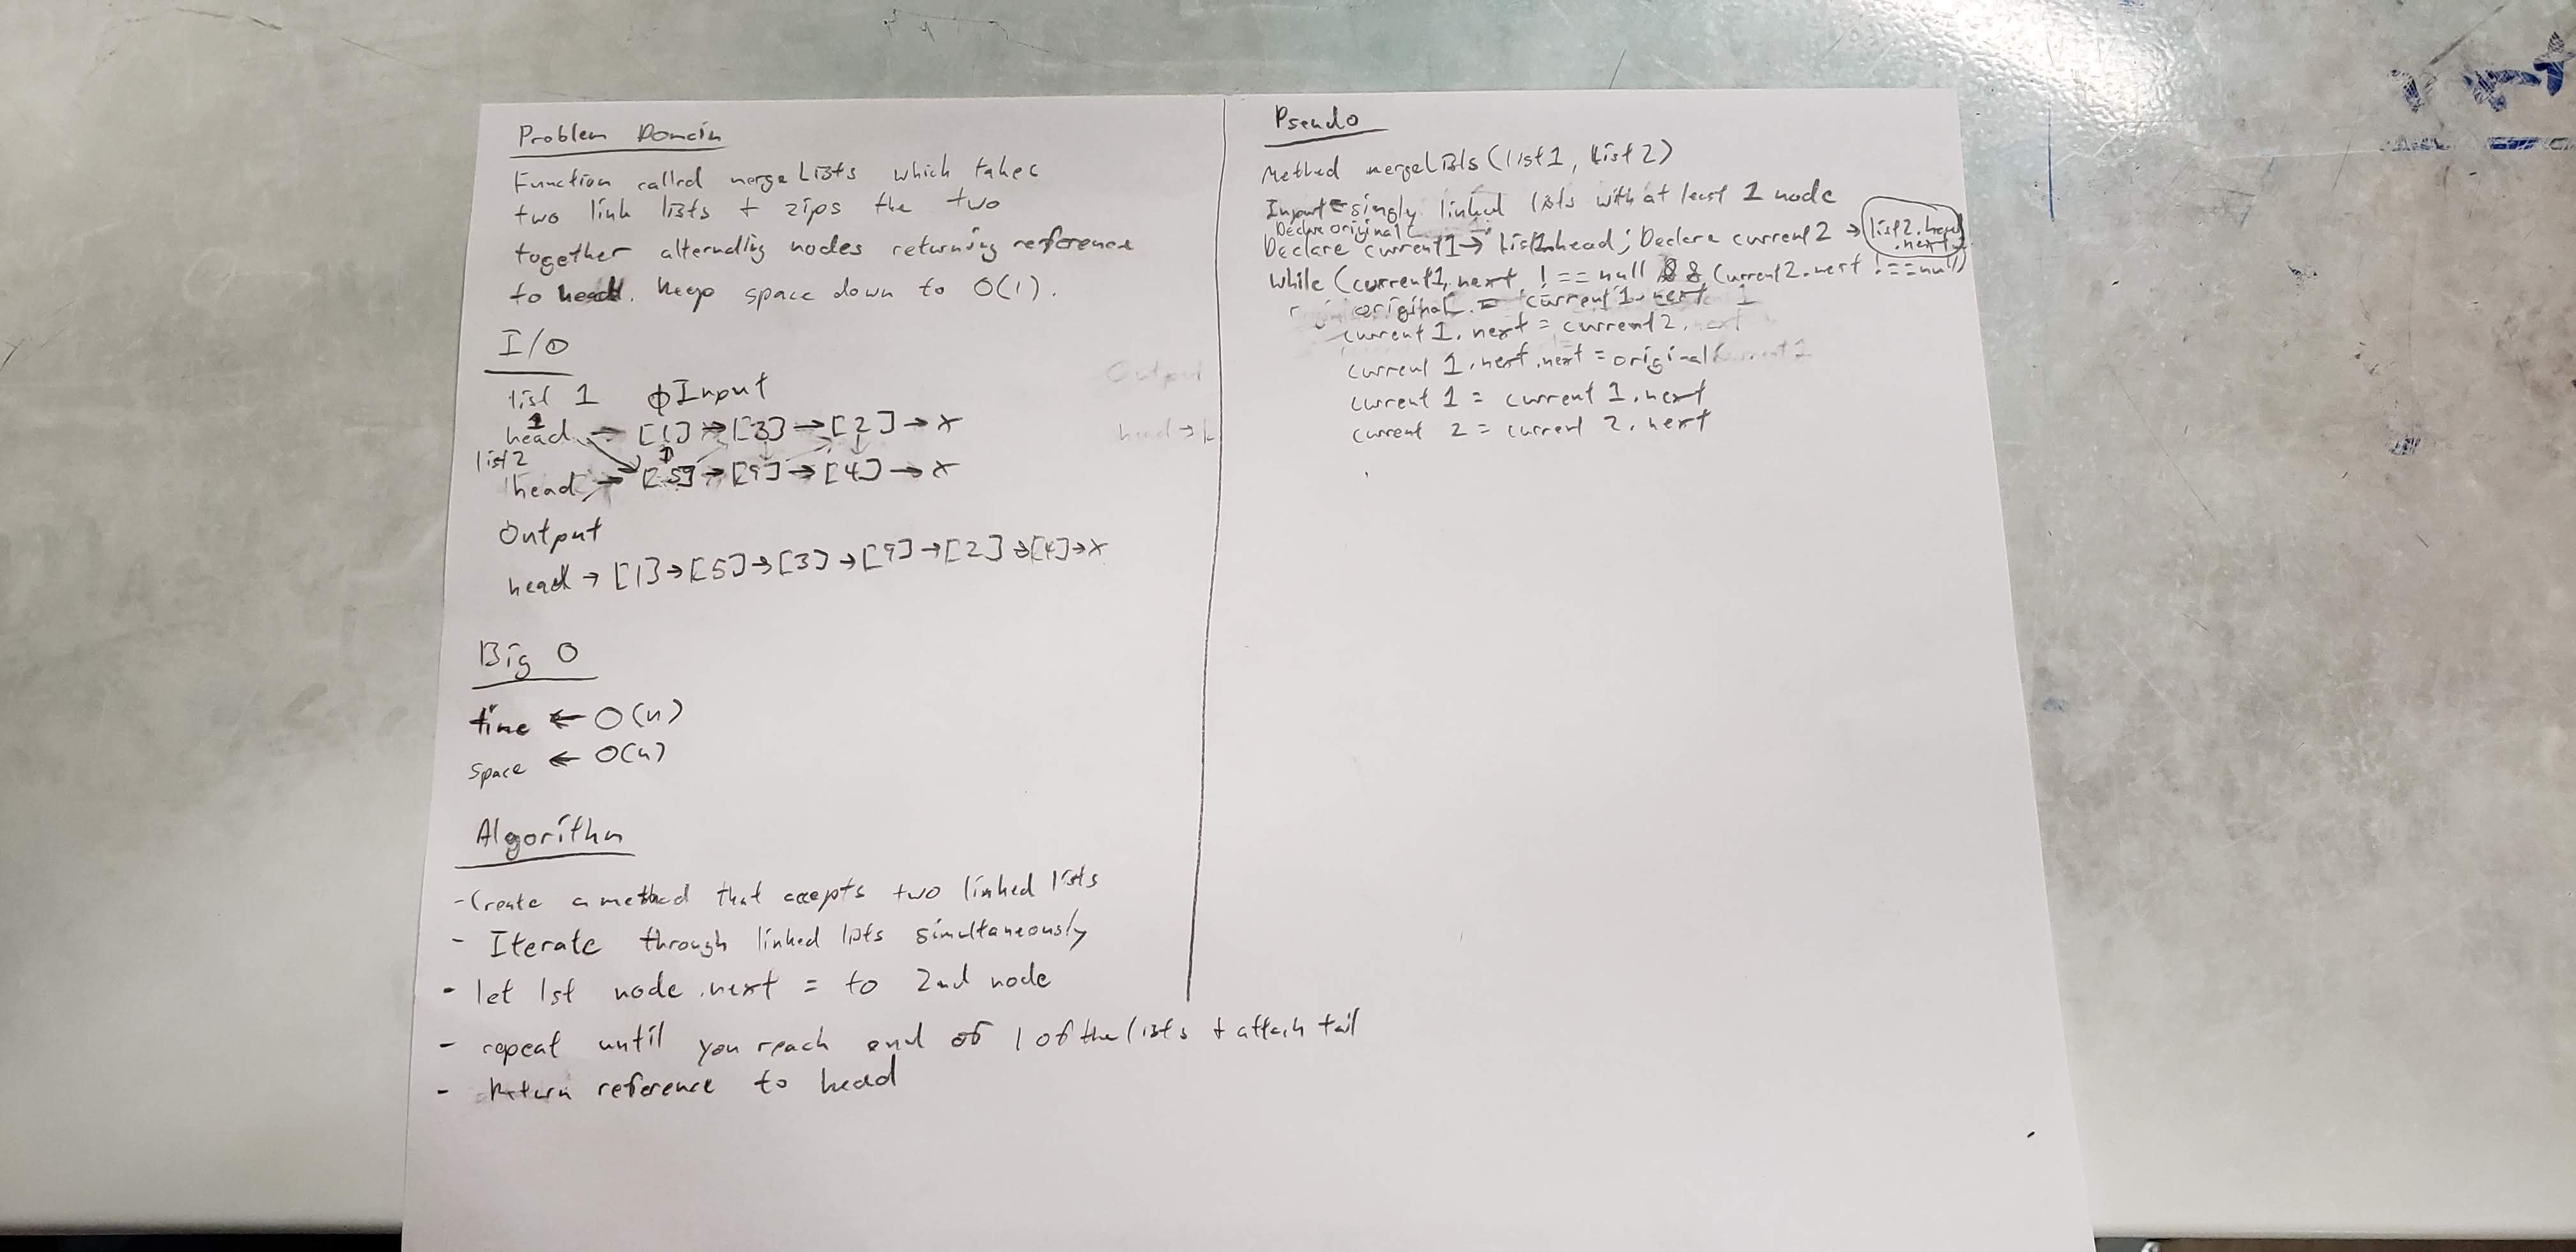 Problem Domain
Function called mergeLists which takes
two link lists + zips the two
together alternating nodes returning reference
to head. Keep space down to O(1).
I/O
list 1 Input
head → [1] → [3] → [2] → x
list 2
head → [5] → [9] → [4] → x
Output
head → [1] → [5] → [3] → [9] → [2] → [4] → x
Big O
time ← O(n)
space ← O(n)
Algorithm
- Create a method that accepts two linked lists
- Iterate through linked lists simultaneously
- let 1st node.next = to 2nd node
- repeat until you reach end of 1 of the lists + attach tail
- Return reference to head
Output
head →
Pseudo
Method mergeLists (list1, list2)
Input ← singly linked lists with at least 1 node
Declare original
Declare current1 → list1.head; Declare current2 → list2.head
.next
while (current1.next !== null && current2.next !== null)
original = current1.next
current1.next = current2
current1.next.next = original
current 1 = current 1.next
current 2 = current 2.next